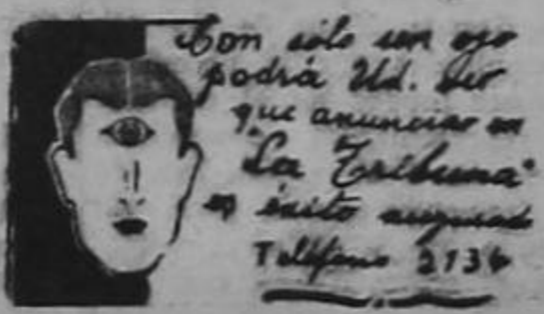 Con sólo un ojo
podrá Ud. ver
que anunciar en
"La Tribuna"
es éxito asegurado
Teléfono 2136